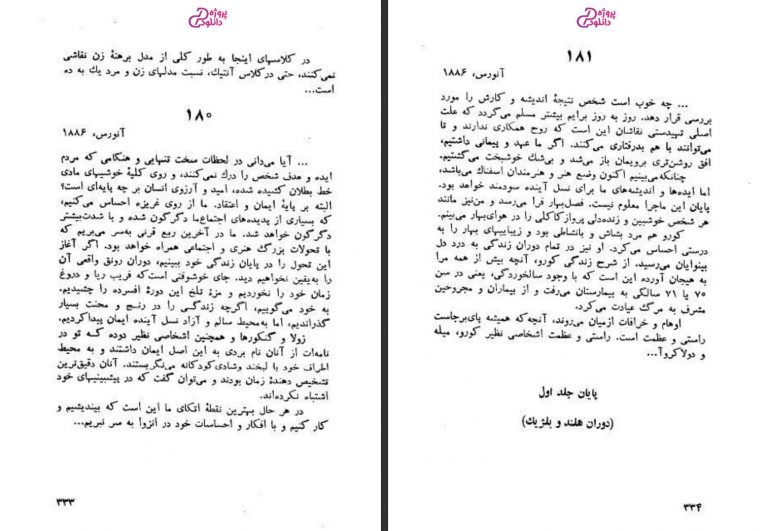 پروژه
دانلود
در کلاسهای اینجا به طور کلی از مدل برهنهٔ زن نقاشی
نمی‌کنند، حتی در کلاس آنتیك، نسبت مدلهای زن و مرد یك به ده
است...
۱۸۰
آنورس، ۱۸۸۶
... آیا می‌دانی در لحظات سخت تنهایی و هنگامی که مردم
ایده و هدف شخص را درك نمی‌کنند، و روی کلیهٔ خوشیهای مادی
خط بطلان کشیده شده، امید و آرزوی انسان بر چه پایه‌ای است؟
البته بر پایهٔ ایمان و اعتقاد. ما از روی غریزه احساس می‌کنیم،
که بسیاری از پدیده‌های اجتماع‌ما دگرگون شده و با شدت‌بیشتر
دگرگون خواهد شد. ما در آخرین ربع قرنی به‌سر می‌بریم که
با تحولات بزرگ هنری و اجتماعی همراه خواهد بود. اگر آغاز
این تحول را در پایان زندگی خود ببینیم، دوران رونق واقعی آن
را به‌یقین نخواهیم دید. جای خوشوقتی است‌که فریب ریا و دروغ
زمان خود را نخوردیم و مزهٔ تلخ این دورهٔ افسرده را چشیدیم.
به خود می‌گوییم، اگرچه زندگی را در رنج و محنت بسیار
گذراندیم، اما به‌محیط سالم و آزاد نسل آینده ایمان پیداکردیم.
زولا و گنکورها و همچنین اشخاصی نظیر دوده که تو در
نامه‌ات از آنان نام بردی به این اصل ایمان داشتند و به محیط
اطراف خود با لبخند وشادی‌کودکانه می‌نگریستند. آنان دقیق‌ترین
تشخیص دهندهٔ زمان بودند و می‌توان گفت که در پیشبینیهای خود
اشتباه نکرده‌اند.
در هر حال بهترین نقطهٔ اتکای ما این است که بیندیشیم و
کار کنیم و با افکار و احساسات خود در انزوا به سر نبریم...
۳۳۳
پروژه
دانلود
۱۸۱
آنورس، ۱۸۸۶
... چه خوب است شخص نتیجهٔ اندیشه و کارش را مورد
بررسی قرار دهد. روز به روز برایم بیشتر مسلم می‌گردد که علت
اصلی تهیدستی نقاشان این است که روح همکاری ندارند و تا
می‌توانند با هم بدرفتاری می‌کنند. اگر ما عهد و پیمانی داشتیم،
افق روشن‌تری برویمان باز می‌شد و بی‌شك خوشبخت می‌گشتیم.
چنانکه‌می‌بینیم اکنون وضع هنر و هنرمندان اسفناك می‌باشد،
اما ایده‌ها و اندیشه‌های ما برای نسل آینده سودمند خواهد بود.
پایان این ماجرا معلوم نیست. فصل‌بهار فرا می‌رسد و من‌نیز مانند
هر شخص خوشبین و زنده‌دلی پروازکاکلی را در هوای‌بهار می‌بینم.
کورو هم مرد بشاش و بانشاطی بود و زیباییهای بهار را به
درستی احساس می‌کرد. او نیز در تمام دوران زندگی به درد دل
بینوایان می‌رسید. از شرح زندگی کورو، آنچه بیش از همه مرا
به هیجان آورده این است که با وجود سالخوردگی، یعنی در سن
۷۰ یا ۷۱ سالگی به بیمارستان می‌رفت و از بیماران و مجروحین
مشرف به مرگ عیادت می‌کرد.
اوهام و خرافات ازمیان می‌روند، آنچه‌که همیشه پای‌برجاست
راستی و عظمت است. راستی و عظمت اشخاصی نظیر کورو، میله
و دولاکروآ...
پایان جلد اول
(دوران هلند و بلژیك)
۳۳۴